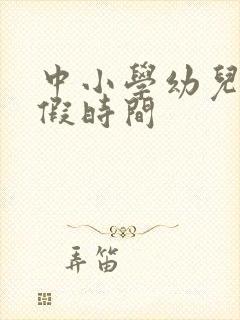 中小學幼兒
假時間
弄笛